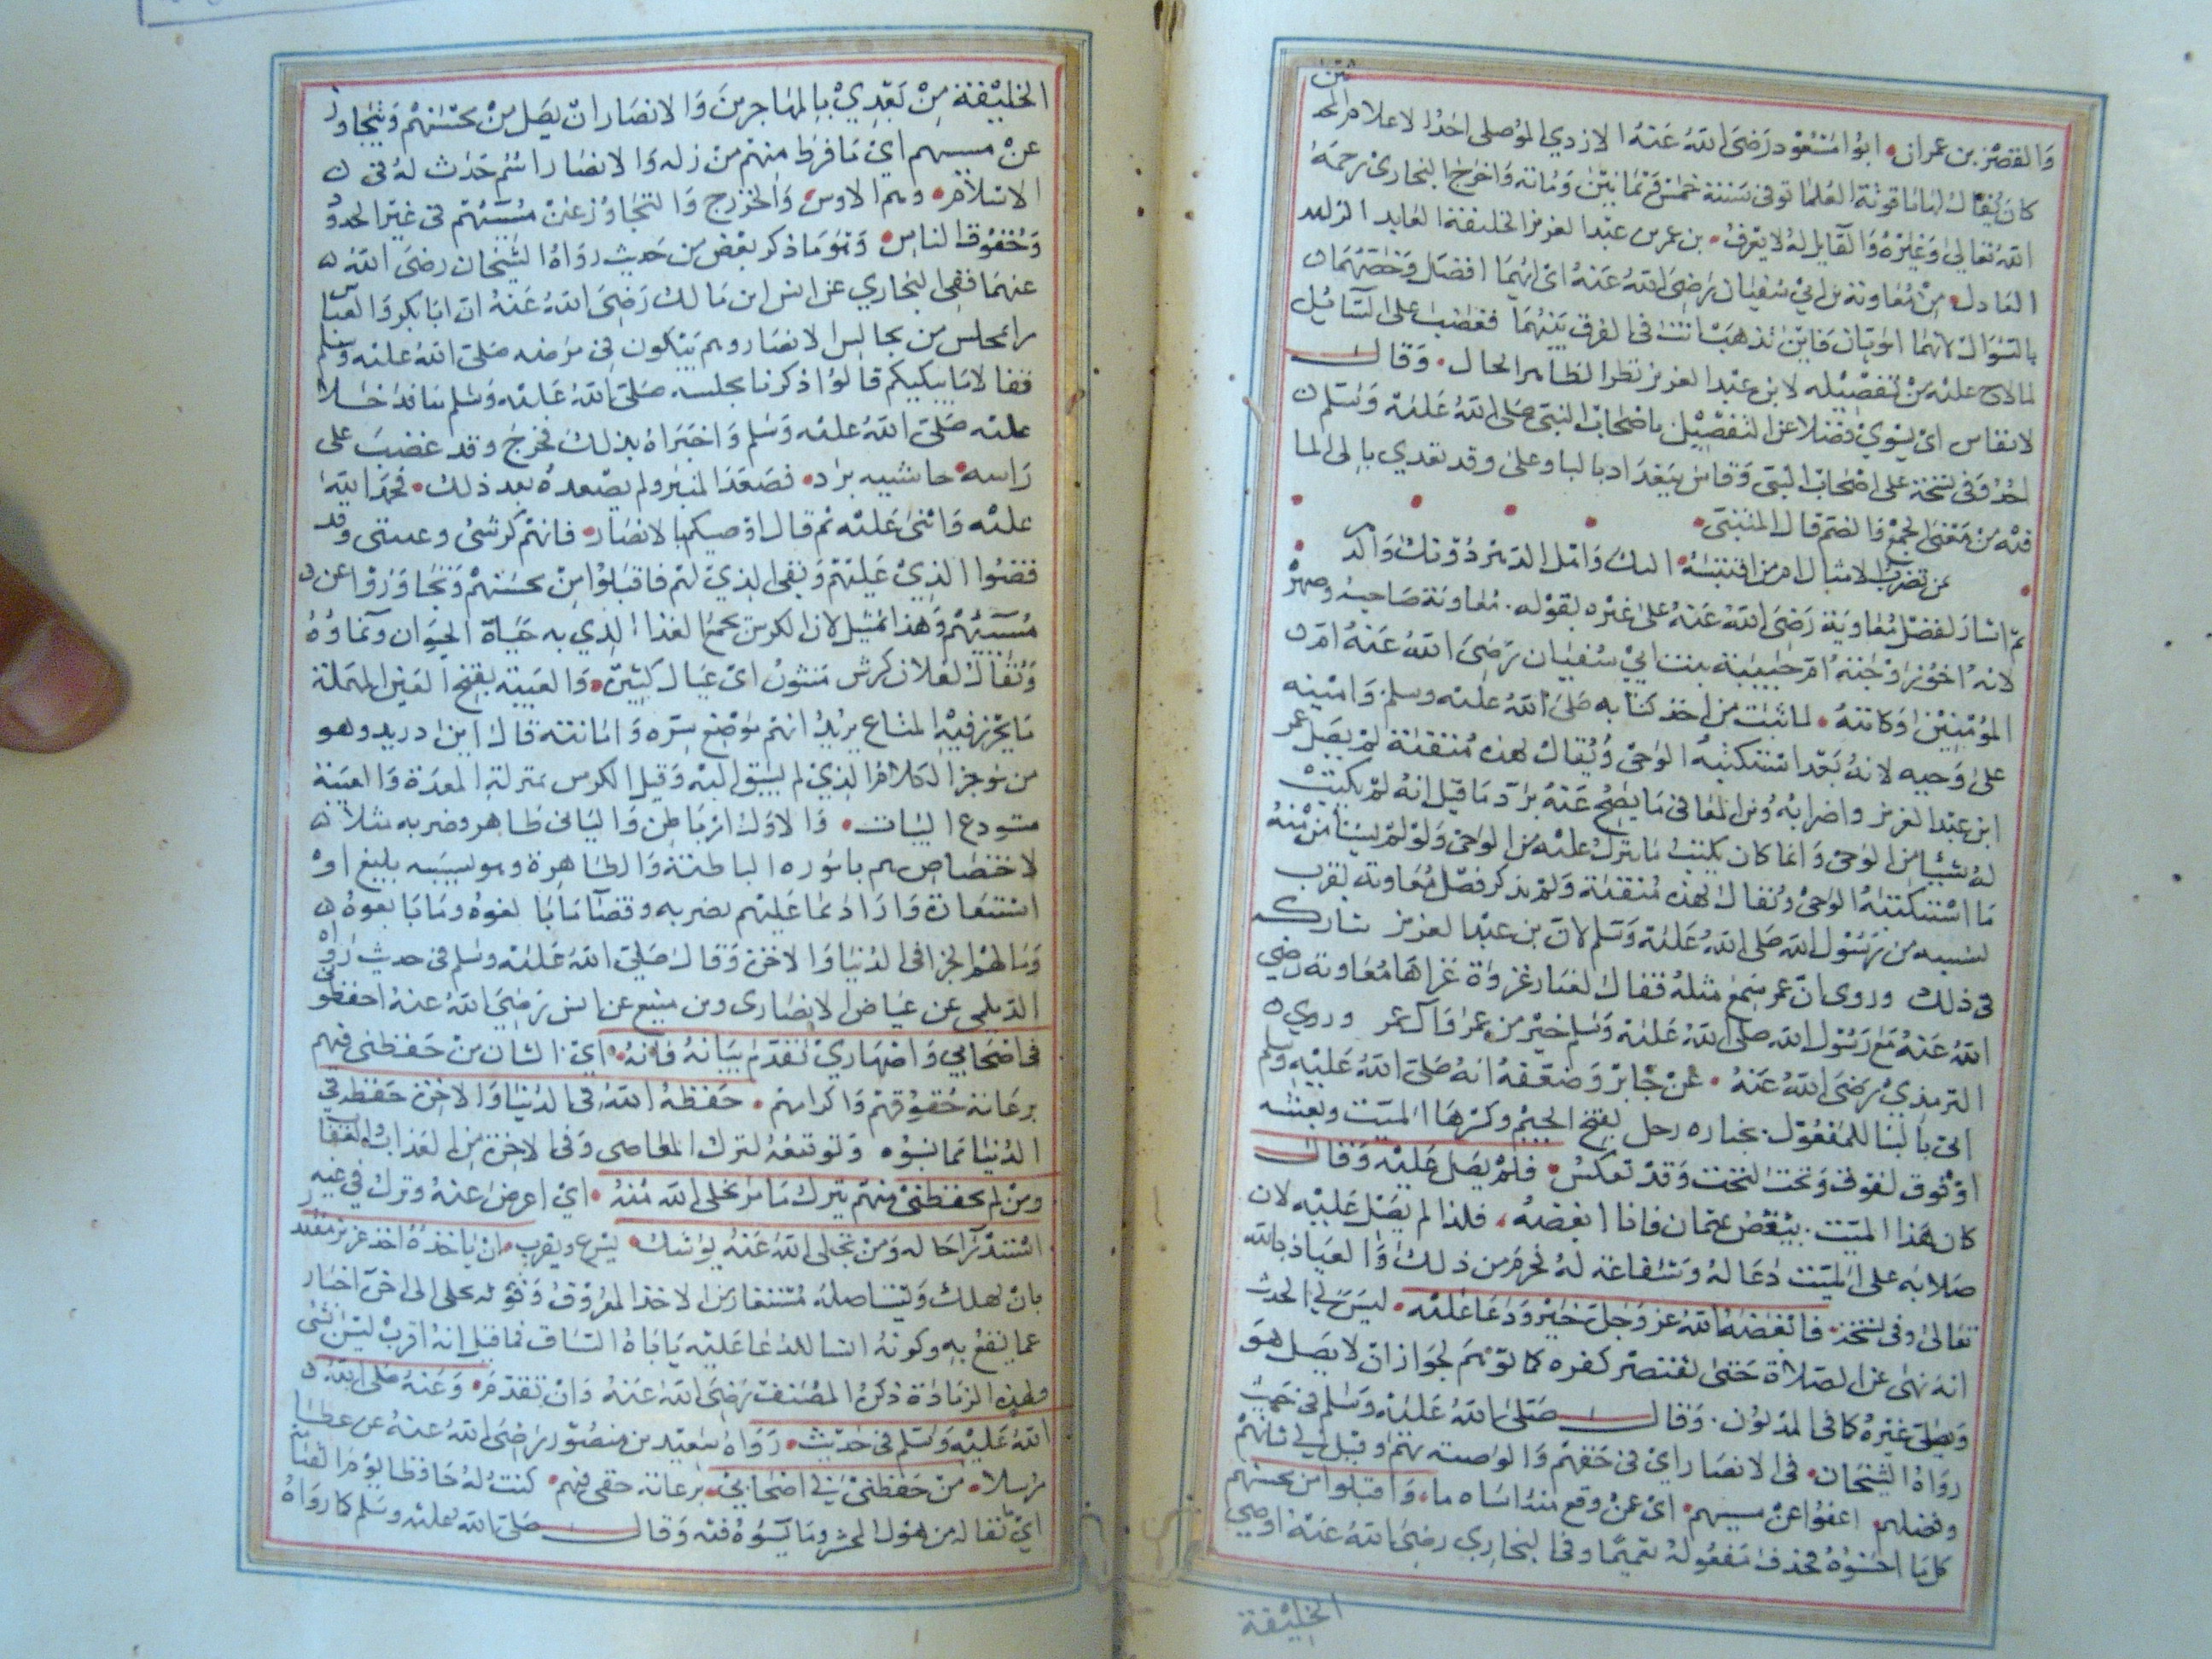 والقصر بن عمران ابو اسعود رضى الله عنه الازدي الموصلى احد الاعلام
كان يقال له ياقوتة العلما توفى سنة خمس وثمانين ومائة واخرج البخارى رحمه
الله تعالى وغيره والقايل له لا يعرف بن عمر بن عبد العزيز الخليفة العابد الزاهد
العادل من معاوية بن ابي سفيان رضى الله عنه اى ايهما افضل وخصهما
بالسؤال لانهما امويان فاين تذهب انت فى الفرق بينهما فغضب على السايل
لما لاح عليه من تفضيله لابن عبد العزيز نظرا لظاهر الحال وقال
لا يقاس اى يسوي فضلا عن التفضيل باصحاب النبى صلى الله عليه وسلم
احد وفى نسخة على اصحاب النبى وقاس يتعدا بالبا وعلى وقد تعدي بالى لما
فيه من معنى الجمع والضم قال المتنبى
بمن تضرب الامثال ام من اقيسه اليك واهل الدهر دونك والدهر
ثم اشار لفضل معاوية رضى الله عنه على غيره بقوله معاوية صاحبه وصهره
لانه اخو زوجته ام حبيبة بنت ابي سفيان رضى الله عنه ام
المؤمنين وكاتبه لما ثبت من اخذ كتابه صلى الله عليه وسلم وامينه
على وحيه لانه بعد استكتبه الوحى ويقال لهذه منقبة لم يصل عمر
ابن عبد العزيز واضرابه ومن المعافى ما يصح عنه برد ما قيل انه لم يكتب
له شيئا من الوحى وانما كان يكتب ما ينزل عليه من الوحى ولو لم يستامنه
ما استكتبه الوحى ويقال لهذه منقبة ولم يذكر فضل معاوية بقرب
نسبه من رسول الله صلى الله عليه وسلم لان بن عبد العزيز شاركه
فى ذلك وروى ان عمر سمع مثله فقال لغبار غزوة غزاها معاوية رضي
الله عنه مع رسول الله صلى الله عليه وسلم خير من عمر وآل عمر وروي
الترمذي رضى الله عنه عن جابر وضعفه انه صلى الله عليه وسلم
اتى بالبنا للمفعول بجنازه رجل بفتح الجيم وكسرها الميت وبعشه
او فوق لفوق وتحت لتحت وقد تعكس فلم يصل عليه وقال
كان هذا الميت يبغض عثمان فانا ابغضه فلذا لم يصل عليه لان
صلاته على الميت دعا له وشفاعة له فحرم من ذلك والعياذ بالله
تعالى وفى نسخة فابغضه الله عز وجل خير ودعا عليه ليس في الحديث
انه نهى عن الصلاة حتى تقتصر كفره كما توهم لجواز ان لا يصل هو
ويصلى غيره كما فى المديون وقال صلى الله عليه وسلم فى حديث
رواه الشيخان فى الانصار اي فى حقهم والوصية بهم وقيل فى شانهم
وفضلهم اعفوا عن مسيهم اى عمن وقع منه اساه ما واقبلوا من محسنهم
كل ما احسنوه فحذف مفعوله تعميما وفى البخاري رضى الله عنه اوصي
الخليفة
الخليفة من بعدي بالمهاجرين والانصار ان يصل من محسنهم ويتجاوز
عن مسيهم اي ما فرط منهم من زله والانصار اسم حدث له فى
الاسلام وهم الاوس والخزرج والتجاوز عن مسيهم فى غير الحدود
وحقوق الناس وهو ما ذكر بعض من حديث رواه الشيخان رضى الله
عنهما ففى البخاري عن انس ابن مالك رضى الله عنه ان ابا بكر والعباس
مرا بمجلس من مجالس الانصار وهم يبكون فى مرضه صلى الله عليه وسلم
فقالا ما يبكيكم قالوا ذكرنا مجلسه صلى الله عليه وسلم منا فدخلا
عليه صلى الله عليه وسلم واخبراه بذلك فخرج وقد عصب على
راسه حاشيه برد فصعد المنبر ولم يصعده بعد ذلك فحمد الله
عليه واثنى عليه ثم قال اوصيكم بالانصار فانهم كرشى وعيبتى وقد
قضوا الذي عليهم وبقى الذي لهم فاقبلوا من محسنهم وتجاوزوا عن
مسيئهم وهذا تمثيل لان الكرش مجمع الغذا الذي به حياة الحيوان ونماوه
ويقال لفلان كرش منثور اى عيال كثير والعيبة بفتح العين المهملة
ما يحرز فيه المتاع يريد انهم موضع سره وامانته قال ابن دريد وهو
من موجز الكلام الذي لم يسبق اليه وقيل الكرش بمنزلة المعدة والعيبة
مستودع الثياب والاول ارباطن والثانى ظاهر وضربه مثلا
لاختصاصهم باموره الباطنة والظاهرة وهو تشبيه بليغ او
استعارة واراد بما عليهم نصر به وقضا ما بايعوه
وما لهم الجزا فى الدنيا والاخرة وقال صلى الله عليه وسلم فى حديث رواه
الديلمي عن عياض الانصارى وبن منيع عن انس رضى الله عنه احفظونى
فى اصحابي واصهاري تقدم بيانه فانه اي الشان من حفظنى فيهم
برعاية حقوقهم واكرامهم حفظه الله فى الدنيا والاخرة حفظه فى
الدنيا مما يسوه وتوفيقه لترك المعاصى وفى الاخرة من العذاب والعقاب
ومن لم يحفظنى فيهم يترك ما مر تخلى الله منه اي اعرض عنه وترك فى غيه
استدراحا له ومن تخلى الله عنه يوشك يسرع ويقرب ان ياخذه اخذ عزيز مقتدر
بان يهلك ويستاصله مستعار من الاخذ المعروف وقوله تخلى الى اخره اخبار
عما يفعل به وكونه انشا للدعا عليه ياباه السياق فما قيل انه اقرب ليس بشى
ولهذه الزيادة ذكره المصنف رضى الله عنه وان تقدم وعنه صلى الله
الله عليه وسلم فى حديث رواه سعيد بن منصور رضى الله عنه عن عطا
مرسلا من حفظنى فى اصحابي برعاية حقى فيهم كنت له حافظا يوم القيامة
اي مما يناله من هول المحشر وما يسوه فيه وقال صلى الله عليه وسلم كما رواه